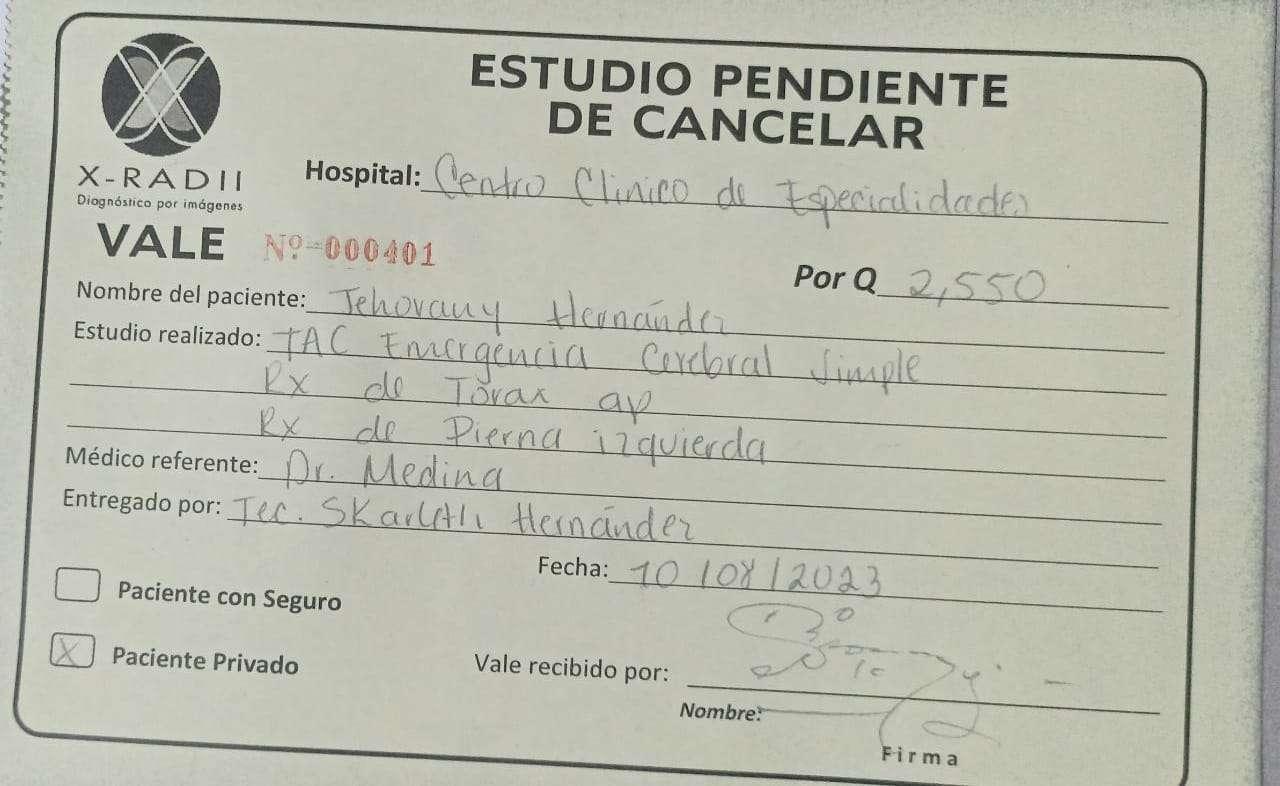 ESTUDIO PENDIENTE
DE CANCELAR
X-RADII
Diagnóstico por imágenes
Hospital: Centro Clinico de Especialidades
VALE Nº 000401
Por Q 2,550
Nombre del paciente: Jehovany Hernández
Estudio realizado: TAC Emergencia Cerebral Simple
Rx de Tórax ap
Rx de Pierna izquierda
Médico referente: Dr. Medina
Entregado por: Tec. Skarleth Hernández
Fecha: 10/08/2023
Paciente con Seguro
X Paciente Privado
Vale recibido por:
Nombre:
Firma